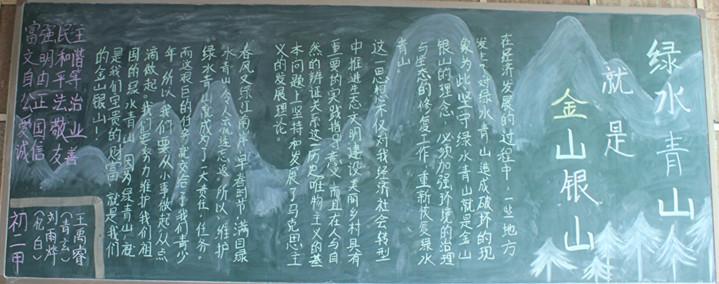 绿水青山
就是
金山银山
在经济发展的过程中，一些地方
发生了对绿水青山造成破坏的现
象为此坚守绿水青山就是金山
银山的理念，必须加强环境的治理
与生态的修复工作，重新恢复绿水
青山。
这一思想不仅对我经济社会转型
中推进生态文明建设美丽乡村具有
重要的实践指导意义而且在人与自
然的辨证关系这一历史唯物主义的基
本问题上坚持和发展了马克思主
义的发展理论。
春风又绿江南岸，早春时节，满目绿
水青山令人流连忘返，所以，维护
绿水青山就成为了一大责任，任务。
而这艰巨的任务就交给了我们青少
年，所以，我们要从小事做起，从点
滴做起，我们要努力维护我们祖
国的绿水青山，因为绿青山，就
是我们宝贵的财富，就是我们
的金山银山！
富强民主
文明和谐
自由平等
公正法治
爱国敬业
诚信友善
王禹睿
（青玄）
刘雨烨
（忱白）
初二甲